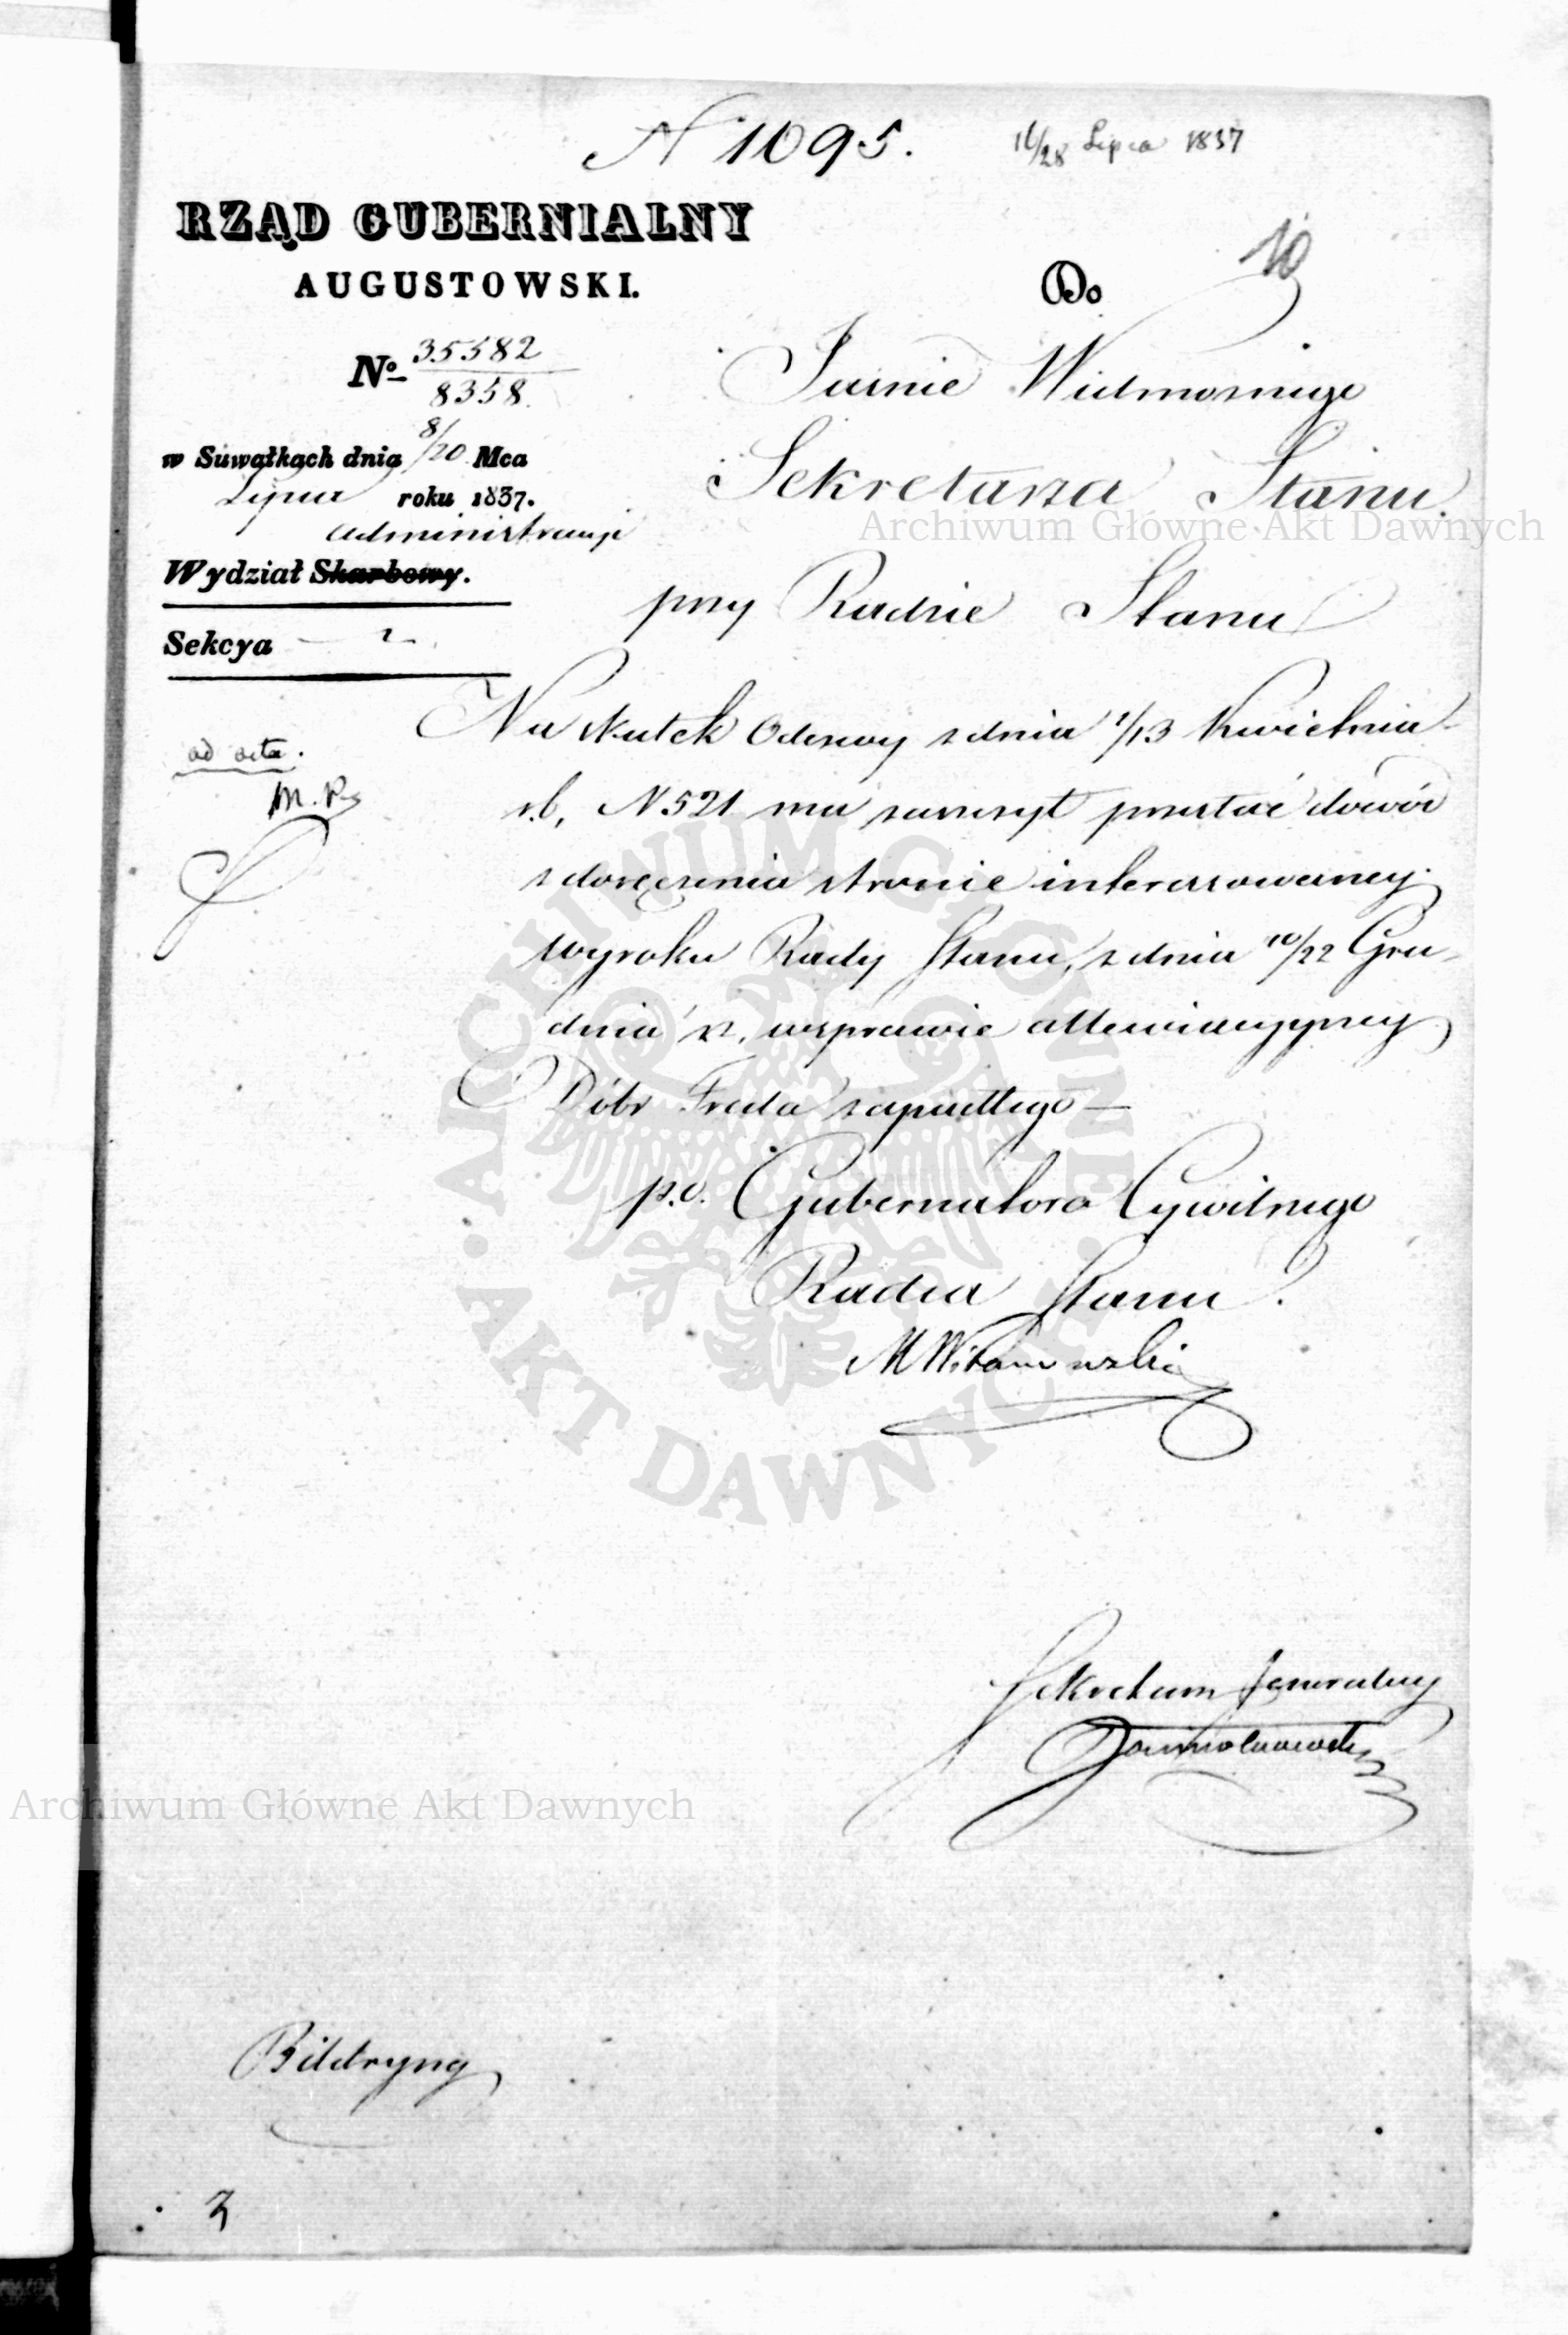 N 1095.
16/28 Lipca 1837
RZĄD GUBERNIALNY
AUGUSTOWSKI.
10
Do
No 35582
8358.
Jaśnie Wielmożnego
w Suwałkach dnia 8/20 Mca
Lipca roku 1837.
Sekretarza Stanu
Administracyi
Wydział Skarbowy.
przy Radzie Stanu
Sekcya — 2 —
Na skutek Odezwy z dnia 1/13 Kwietnia
ad acta.
r.b. N 521 ma zaszczyt przesłać dowód
z doręczenia stronie interessowaney
wyroku Rady Stanu, z dnia 10/22 Gru-
dnia r.z. w sprawie allewiacyyney
Dóbr Freda zapadłego —
p.o. Gubernatora Cywilnego
Radca Stanu.
Sekretarz Jeneralny
Bildryng
3
Archiwum Główne Akt Dawnych
Archiwum Główne Akt Dawnych
ARCHIWUM GŁÓWNE AKT DAWNYCH